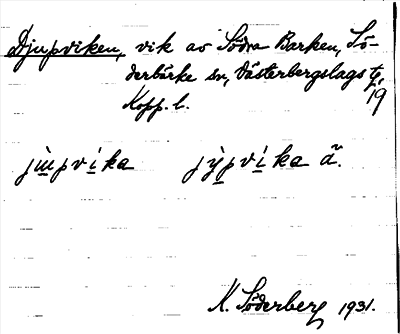 Djupviken, vik av Södra Barken, Sö-
derbärke sn, Västerbergslags tg,
Kopp. l. 19
jùpvika jỳpvika ä.
K. Söderberg 1931.